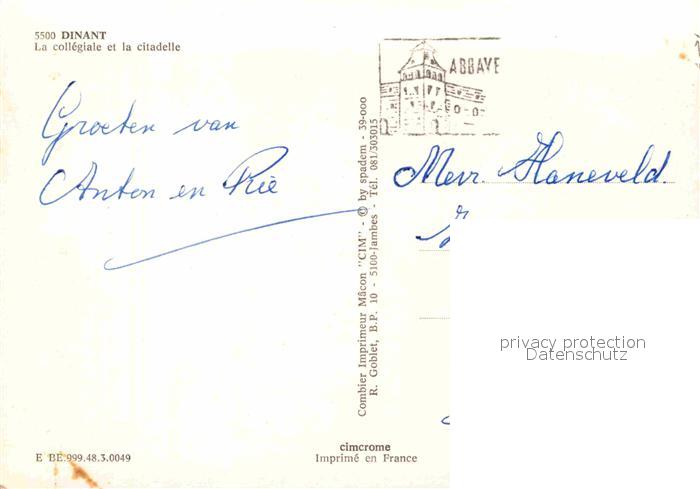 5500 DINANT
La collégiale et la citadelle
ABBAYE
Groeten van
Anton en Rie
Mevr. Haneveld.
Combier Imprimeur Mâcon "CIM" - © by spadem - 39-000
R. Goblet, B.P. 10 - 5100-Jambes - Tél. 081/303015
privacy protection
Datenschutz
E BE.999.48.3.0049
cimcrome
Imprimé en France